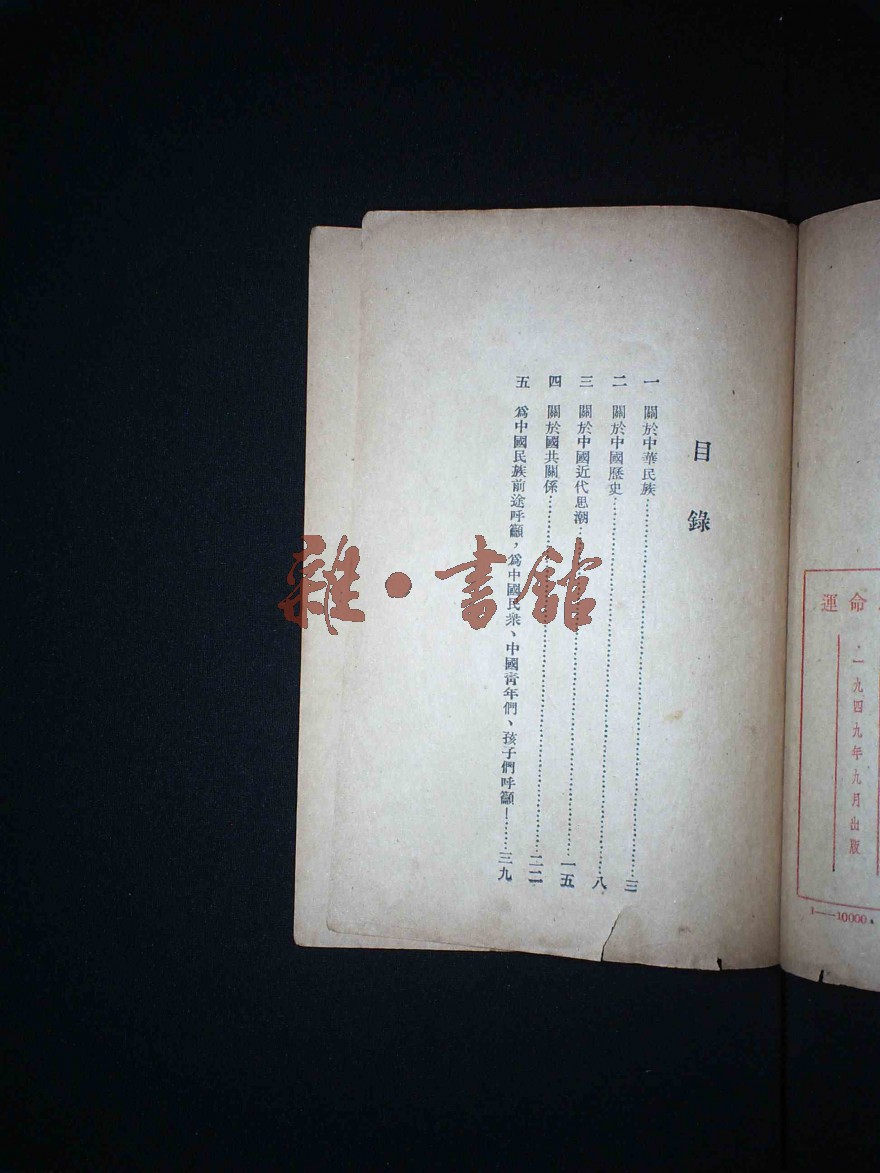 命運
一九四九年九月出版
1—10000.
目錄
一 關於中華民族……三
二 關於中國歷史……八
三 關於中國近代思潮……一五
四 關於國共關係……二二
五 爲中國民族前途呼籲，爲中國民衆、中國靑年們、孩子們呼籲！……三九
雜·書館